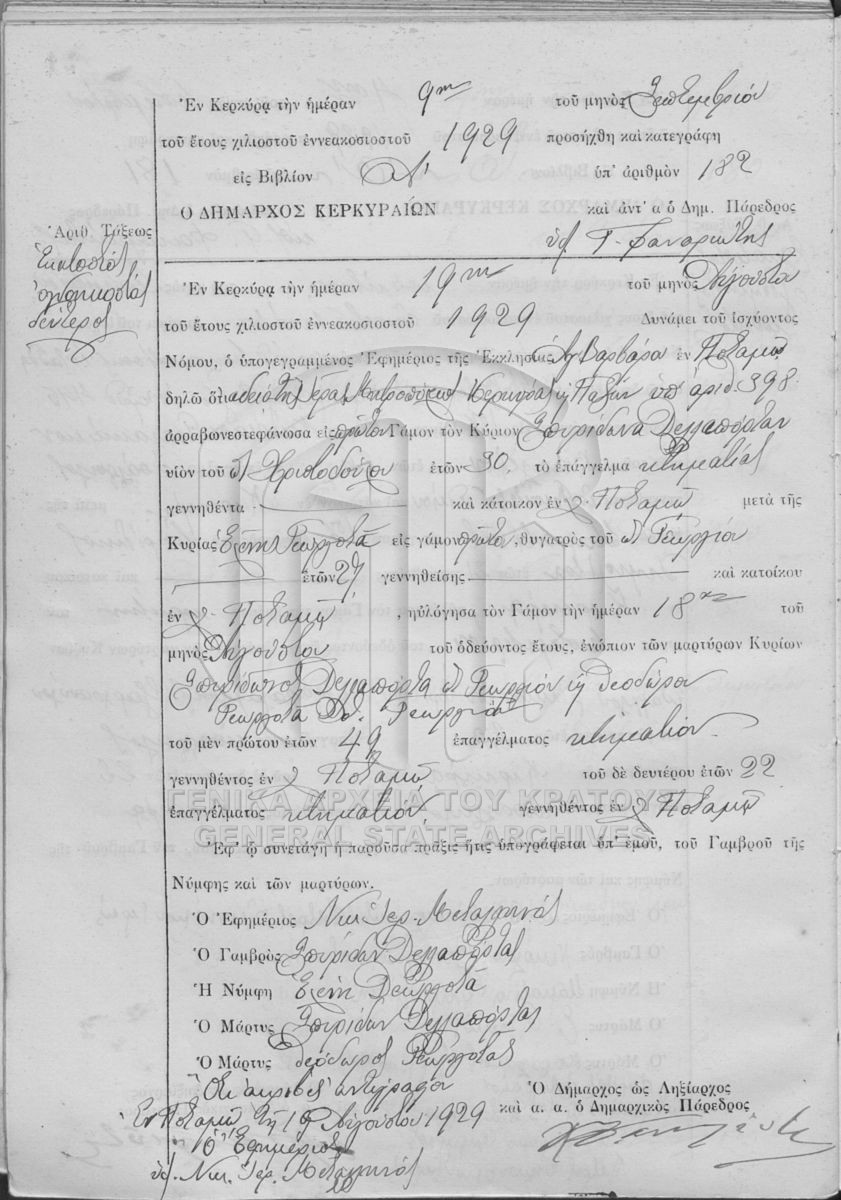 Ἐν Κερκύρᾳ τὴν ἡμέραν 9ην τοῦ μηνὸς Σεπτεμβρίου
τοῦ ἔτους χιλιοστοῦ ἐννεακοσιοστοῦ 1929 προσήχθη καὶ κατεγράφη
εἰς Βιβλίον Α' ὑπ' ἀριθμὸν 182
Ο ΔΗΜΑΡΧΟΣ ΚΕΡΚΥΡΑΙΩΝ καὶ ἀντ' α ὁ Δημ. Πάρεδρος
Ἀριθ. Τάξεως
Ἑκατοστὸς
ὀγδοηκοστὸς
δεύτερος
Ἐν Κερκύρᾳ τὴν ἡμέραν 19ην τοῦ μηνὸς Αὐγούστου
τοῦ ἔτους χιλιοστοῦ ἐννεακοσιοστοῦ 1929 Δυνάμει τοῦ ἰσχύοντος
Νόμου, ὁ ὑπογεγραμμένος Ἐφημέριος τῆς Ἐκκλησίας Ἁγ Βαρβάρα ἐν Ποταμῷ
δηλῶ ὅτι ἀδείᾳ τῆς Ἱερᾶς Μητροπόλεως Κερκύρας ἢ Παξῶν ὑπ' ἀριθ. 398
ἀρραβωνεστεφάνωσα εἰς πρῶτον Γάμον τὸν Κύριον Σπυρίδωνα Δελλαπόρταν
υἱὸν τοῦ Χριστοδούλου ἐτῶν 30, τὸ ἐπάγγελμα κτηματίας
γεννηθέντα καὶ κάτοικον ἐν Ποταμῷ μετὰ τῆς
Κυρίας Ἑλένης Γεωργοτᾶ εἰς γάμον πρῶτον, θυγατρὸς τοῦ Γεωργίου
ἐτῶν 27 γεννηθείσης καὶ κατοίκου
ἐν Ποταμῷ, ηὐλόγησα τὸν Γάμον τὴν ἡμέραν 18ην τοῦ
μηνὸς Αὐγούστου τοῦ ὁδεύοντος ἔτους, ἐνώπιον τῶν μαρτύρων Κυρίων
Σπυρίδωνος Δελλαπόρτα Γεωργίου ἢ Θεοδώρου
Γεωργοτᾶ Γεωργίου
τοῦ μὲν πρώτου ἐτῶν 49 ἐπαγγέλματος κτηματίου
γεννηθέντος ἐν Ποταμῷ τοῦ δὲ δευτέρου ἐτῶν 22
ἐπαγγέλματος κτηματίου, γεννηθέντος ἐν Ποταμῷ
ΓΕΝΙΚΑ ΑΡΧΕΙΑ ΤΟΥ ΚΡΑΤΟΥΣ
GENERAL STATE ARCHIVES
Ἐφ' ᾧ συνετάγη ἡ παροῦσα πρᾶξις ἥτις ὑπογράφεται ὑπ' ἐμοῦ, τοῦ Γαμβροῦ τῆς
Νύμφης καὶ τῶν μαρτύρων.
Ὁ Ἐφημέριος Νικ Ἱερ. Μεταλληνὸς
Ὁ Γαμβρὸς Σπυρίδων Δελλαπόρτας
Ἡ Νύμφη Ἑλένη Γεωργοτᾶ
Ὁ Μάρτυς Σπυρίδων Δελλαπόρτας
Ὁ Μάρτυς Θεόδωρος Γεωργοτᾶς
Ὅτι ἀκριβὲς ἀντίγραφον
Ἐν Ποταμῷ τῇ 19 Αὐγούστου 1929
Ὁ Ἐφημέριος
Νικ. Ἱερ. Μεταλληνὸς
Ὁ Δήμαρχος ὡς Ληξίαρχος
καὶ α. α. ὁ Δημαρχικὸς Πάρεδρος